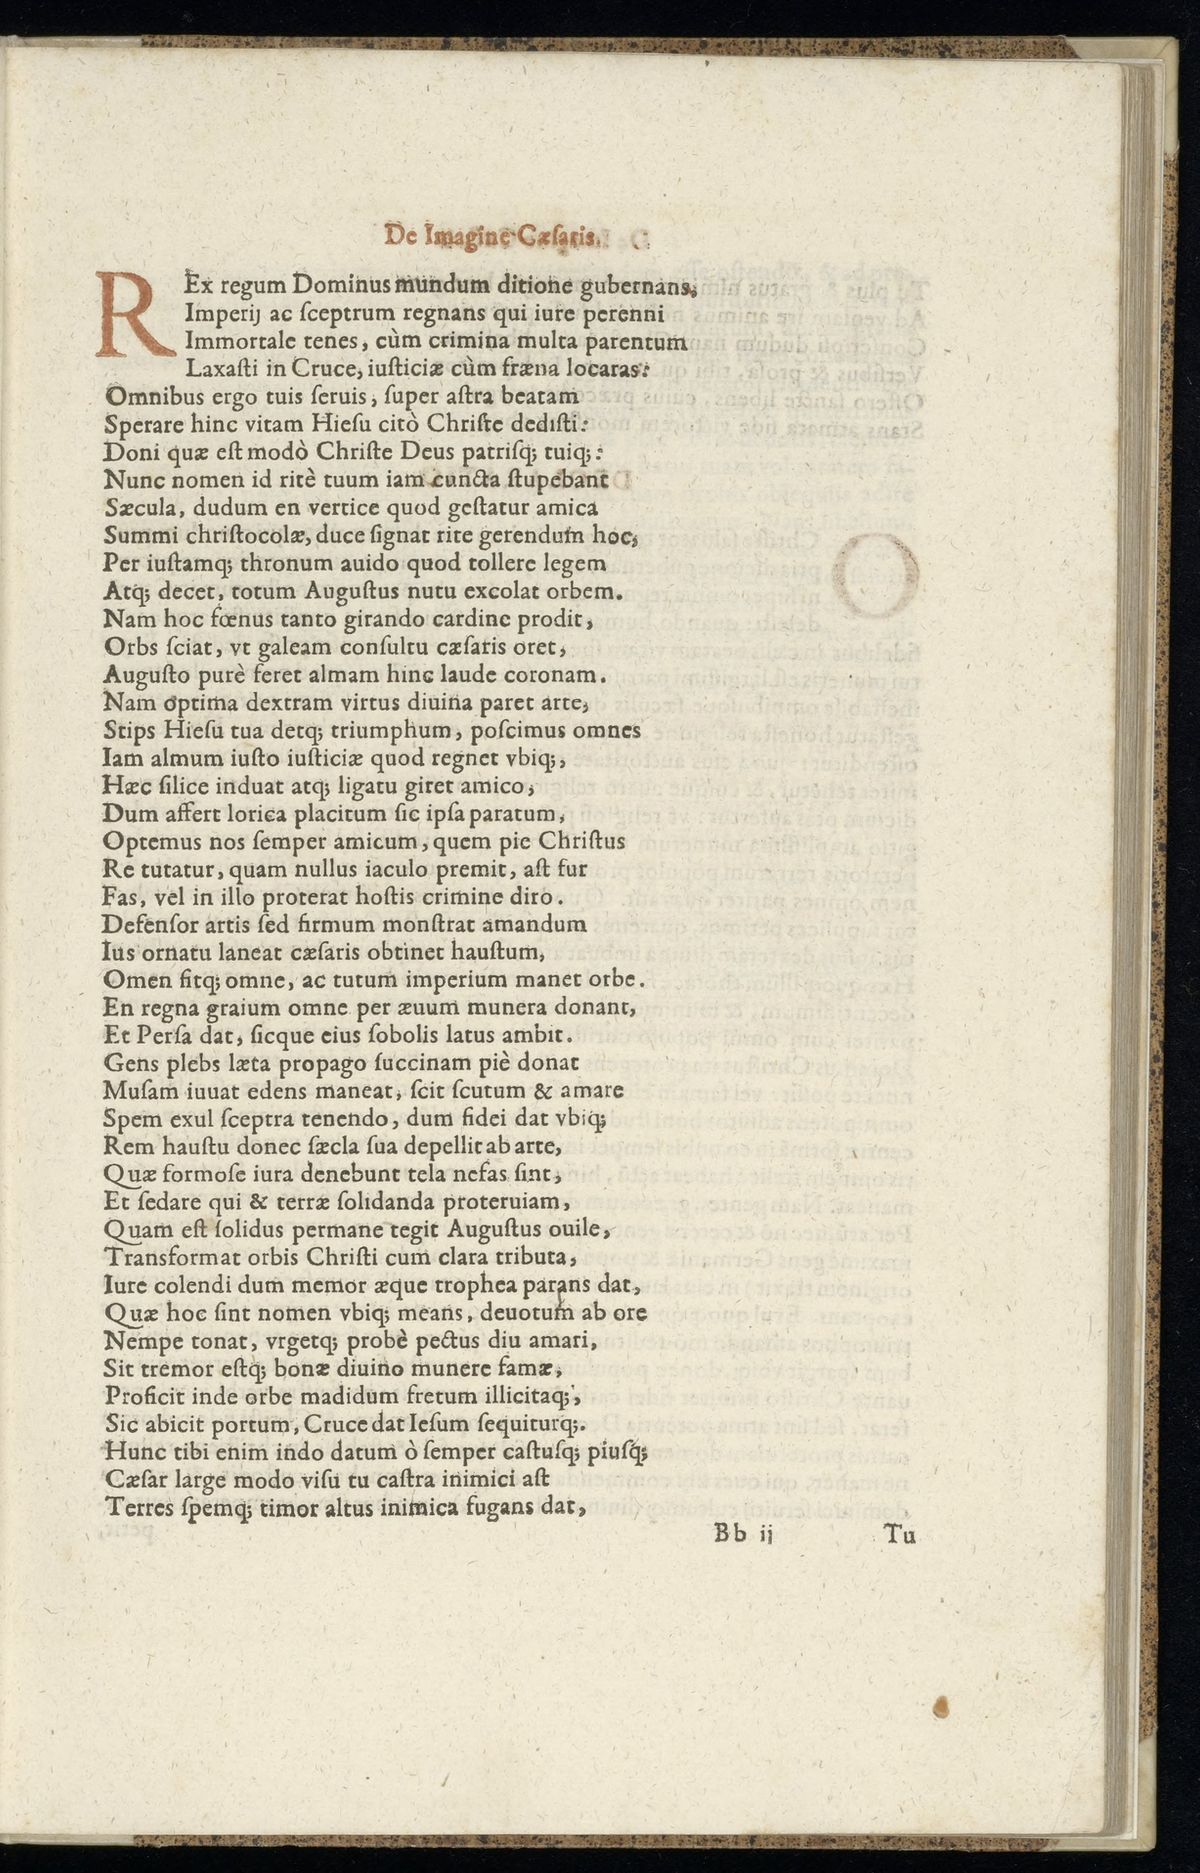 De Imagine Cæſaris.
REx regum Dominus mundum ditione gubernans,
Imperij ac ſceptrum regnans qui iure perenni
Immortale tenes, cùm crimina multa parentum
Laxaſti in Cruce, iuſticiæ cùm fræna locaras:
Omnibus ergo tuis ſeruis, ſuper aſtra beatam
Sperare hinc vitam Hieſu citò Chriſte dediſti:
Doni quæ eſt modò Chriſte Deus patriſq; tuiq;:
Nunc nomen id ritè tuum iam cuncta ſtupebant
Sæcula, dudum en vertice quod geſtatur amica
Summi chriſtocolæ, duce ſignat rite gerendum hoc,
Per iuſtamq; thronum auido quod tollere legem
Atq; decet, totum Auguſtus nutu excolat orbem.
Nam hoc fœnus tanto girando cardine prodit,
Orbs ſciat, vt galeam conſultu cæſaris oret,
Auguſto purè feret almam hinc laude coronam.
Nam optima dextram virtus diuina paret arte,
Stips Hieſu tua detq; triumphum, poſcimus omnes
Iam almum iuſto iuſticiæ quod regnet vbiq;,
Hæc ſilice induat atq; ligatu giret amico,
Dum affert lorica placitum ſic ipſa paratum,
Optemus nos ſemper amicum, quem pie Chriſtus
Re tutatur, quam nullus iaculo premit, aſt fur
Fas, vel in illo proterat hoſtis crimine diro.
Defenſor artis ſed firmum monſtrat amandum
Ius ornatu laneat cæſaris obtinet hauſtum,
Omen fitq; omne, ac tutum imperium manet orbe.
En regna graium omne per æuum munera donant,
Et Perſa dat, ſicque eius ſobolis latus ambit.
Gens plebs læta propago ſuccinam piè donat
Muſam iuuat edens maneat, ſcit ſcutum & amare
Spem exul ſceptra tenendo, dum fidei dat vbiq;
Rem hauſtu donec ſæcla ſua depellit ab arte,
Quæ formoſe iura denebunt tela nefas ſint,
Et ſedare qui & terræ ſolidanda proteruiam,
Quam eſt ſolidus permane tegit Auguſtus ouile,
Transformat orbis Chriſti cum clara tributa,
Iure colendi dum memor æque trophea parans dat,
Quæ hoc ſint nomen vbiq; means, deuotum ab ore
Nempe tonat, vrgetq; probè pectus diu amari,
Sit tremor eſtq; bonæ diuino munere famæ,
Proficit inde orbe madidum fretum illicitaq;,
Sic abicit portum, Cruce dat Ieſum ſequiturq;.
Hunc tibi enim indo datum ò ſemper caſtuſq; piuſq;
Cæſar large modo viſu tu caſtra inimici aſt
Terres ſpemq; timor altus inimica fugans dat,
Bb ij Tu